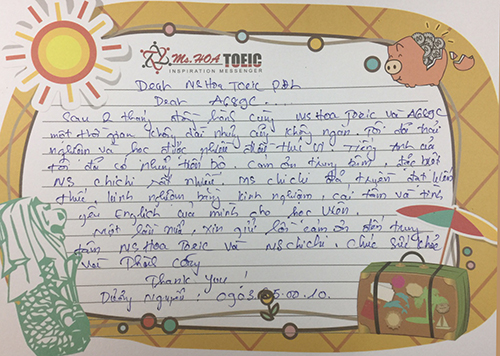 Ms.HOA TOEIC
INSPIRATION MESSENGER
Dear Ms Hoa Toeic PĐL
Dear AGSGC...
Sau 2 tháng đồng hành cùng Ms Hoa Toeic và AGSGC
một thời gian không dài nhưng cũng không ngắn. Tôi đã trải
nghiệm và học được nhiều điều thú vị. Tiếng Anh của
tôi đã có những tiến bộ. Cảm ơn trung tâm, đặc biệt
Ms chichi rất nhiều. Ms chichi đã truyền đạt kiến
thức, kinh nghiệm, bằng kinh nghiệm, cái tâm và tình
yêu English của mình cho học viên.
Một lần nữa, xin gửi lời cảm ơn đến trung
tâm Ms Hoa Toeic và Ms chichi. Chúc sức khỏe
và Thành công
Thank You!
Nguyễn : 0903. 5.00.10.